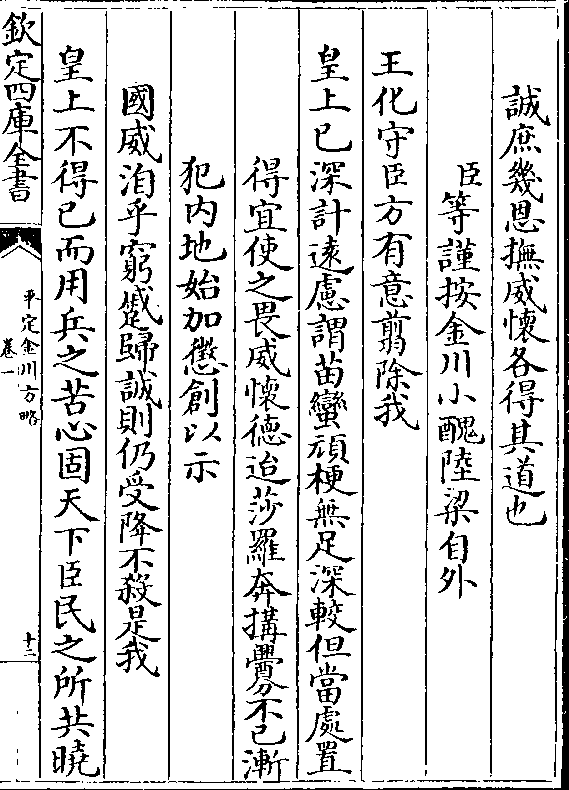 誠庶幾恩撫威懷各得其道也
臣等謹按金川小醜陸梁自外
王化守臣方有意翦除我
皇上已深計逺慮謂苗蠻頑梗無足深較但當處置
得宜使之畏威懷德迨莎羅奔搆釁不已漸
犯内地始加懲創以示
國威洎乎窮蹙歸誠則仍受降不殺是我
皇上不得已而用兵之苦心固天下臣民之所共曉
欽定四庫全書
平定金川方略
卷一
十三